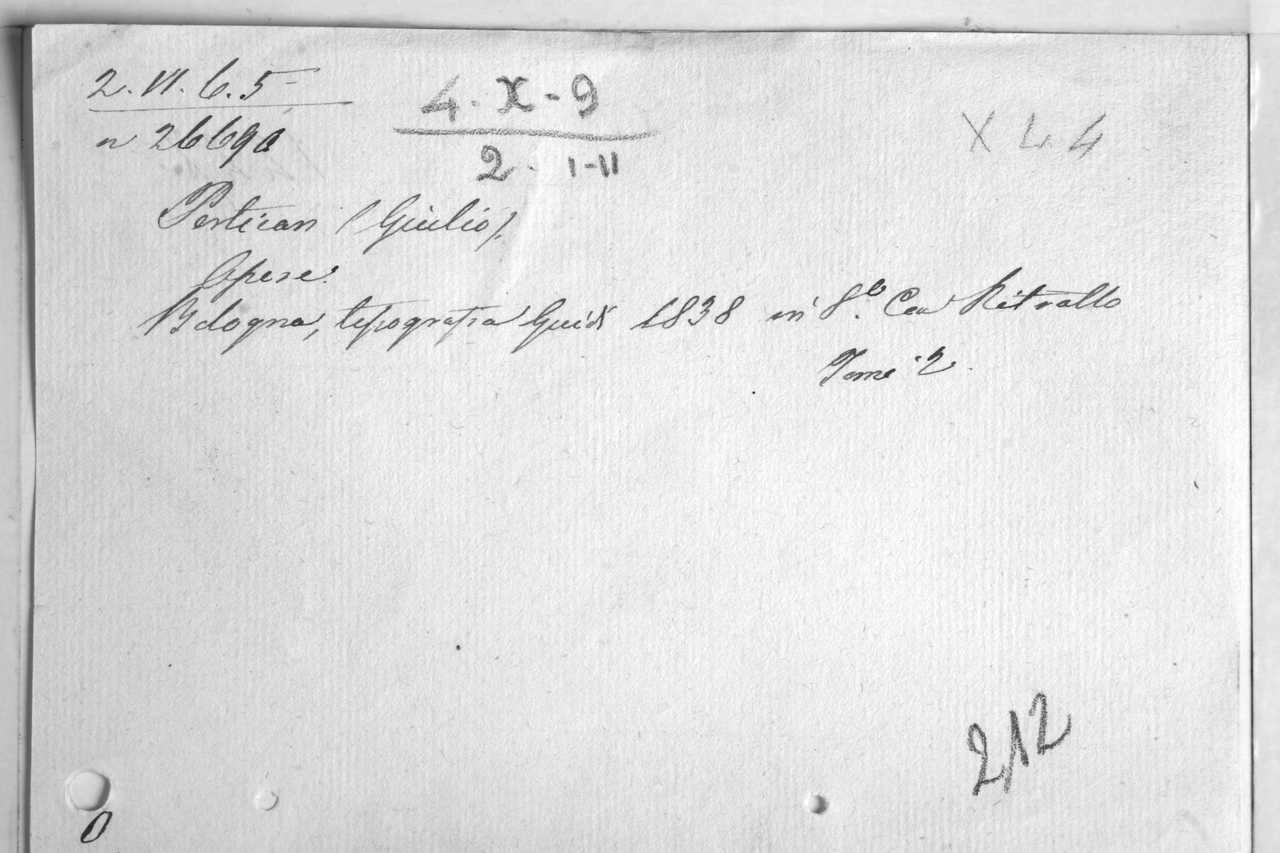 2. VI. 6. 5
4. X - 9
X L 4
n 26690
2. I-II
Perticari (Giulio).
Opere.
Bologna, tipografia Guidi 1838 in 8.° Con Ritratto
Tomi 2.
212
0